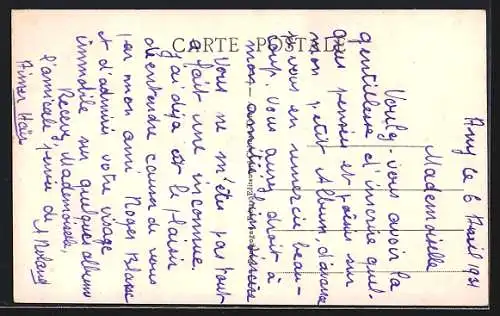 CARTE POSTALE
Any le 6 Avril 1931
Mademoiselle
Voulez-vous avoir la
gentillesse d'inscrire quel-
ques pensées et poésies sur
mon petit Album, d'avance
je vous en remercie beau-
coup. Vous aurez droit à
mon amitié bien sincère
Vous ne m'êtes pas tout
à fait une inconnue.
J'ai déjà eu le plaisir
d'entendre causer de vous
par mon ami Roger Blasse
et d'admirer votre visage
immobile sur quelques albums
Recevez, Mademoiselle,
l'amicale pensée de
Aimer Haïr